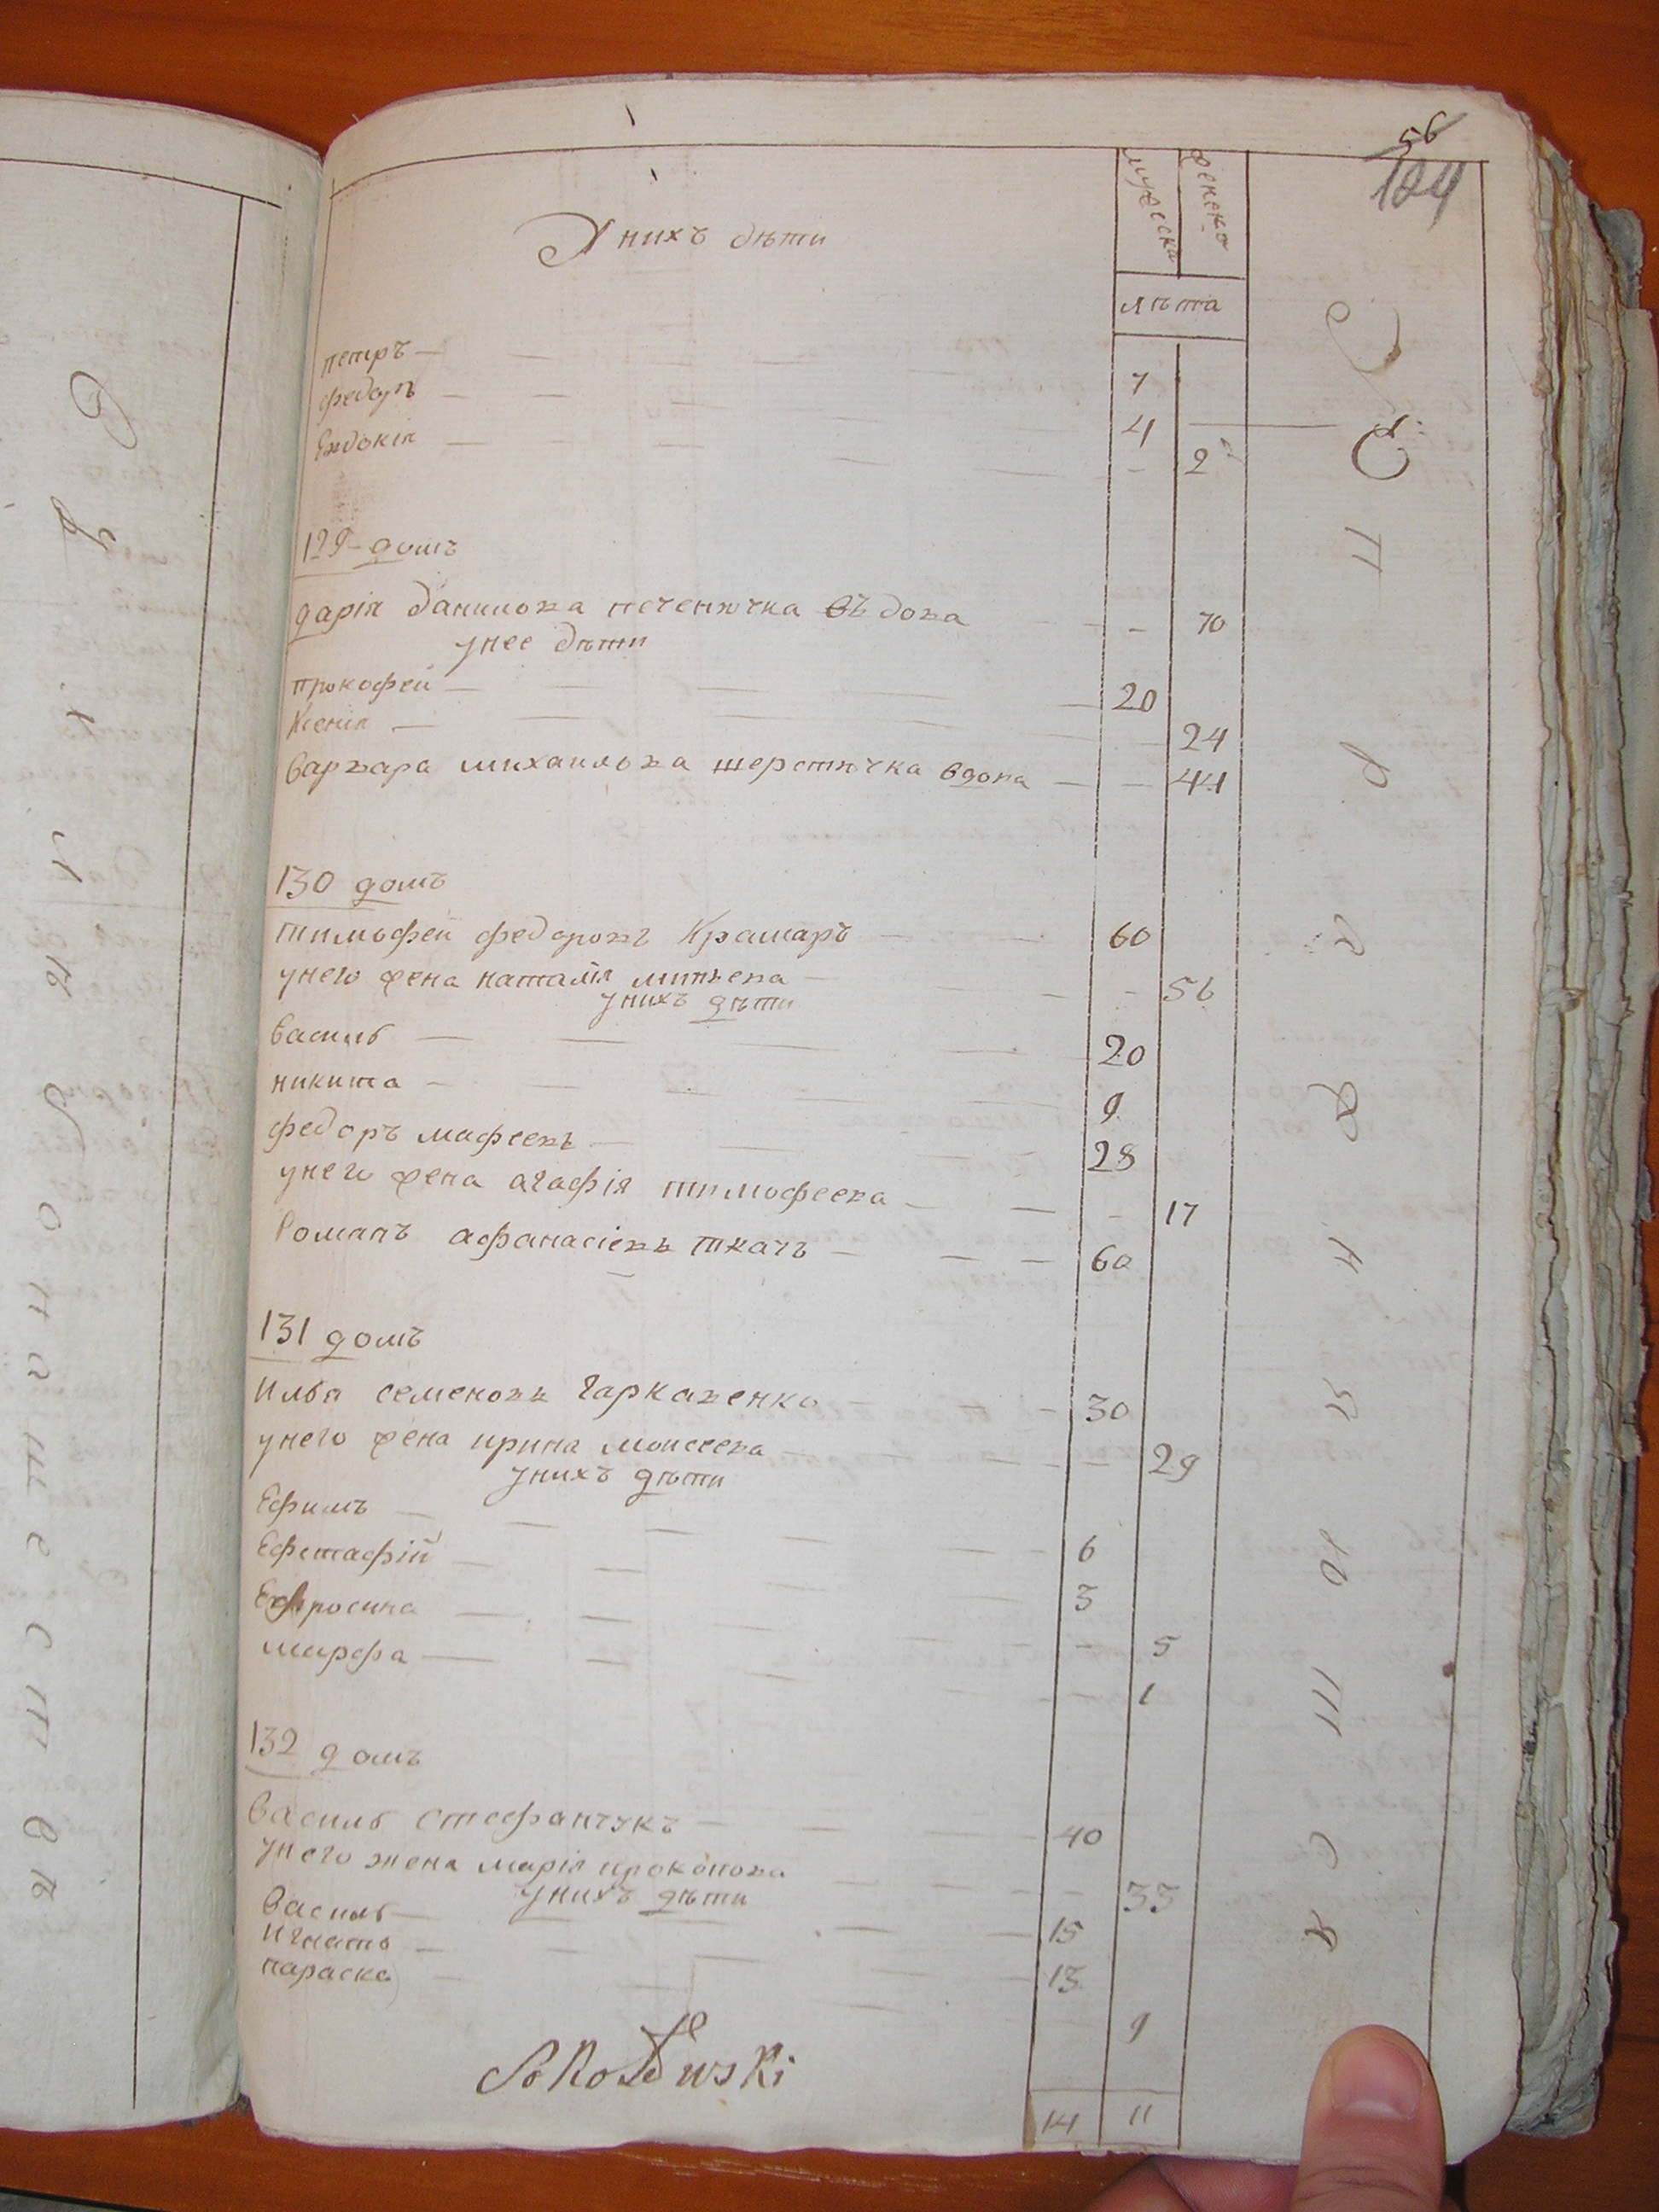 56
124
мужеска женска
Унихъ дѣти
лѣта
петръ — 7
федоръ — 4
Евдокія — 2
129 домъ
дарія данилова печенючка въдова — 70
унее дѣти
прокофей — 20
Ксенія — 24
варвара михаилова шерстючка вдова — 41
130 домъ
тимофей федоровъ Крамаръ — 60
унего жена наталія минѣева — 56
унихъ дѣти
василь — 20
никита — 9
федоръ мафеевъ — 28
унего жена агафія тимофеева — 17
Романъ афанасіевъ ткачъ — 60
131 домъ
Илья семеновъ гаркавенко — 30
унего жена ирина моисеева — 29
унихъ дѣти
Ефимъ — 6
Ефстафій — 3
Ефросина — 5
марфа — 1
132 домъ
василь стефанчукъ — 40
унего жена марія прокопова — 33
унихъ дѣти
василь — 15
игнатъ — 13
параска — 9
Sokołowski
14 11